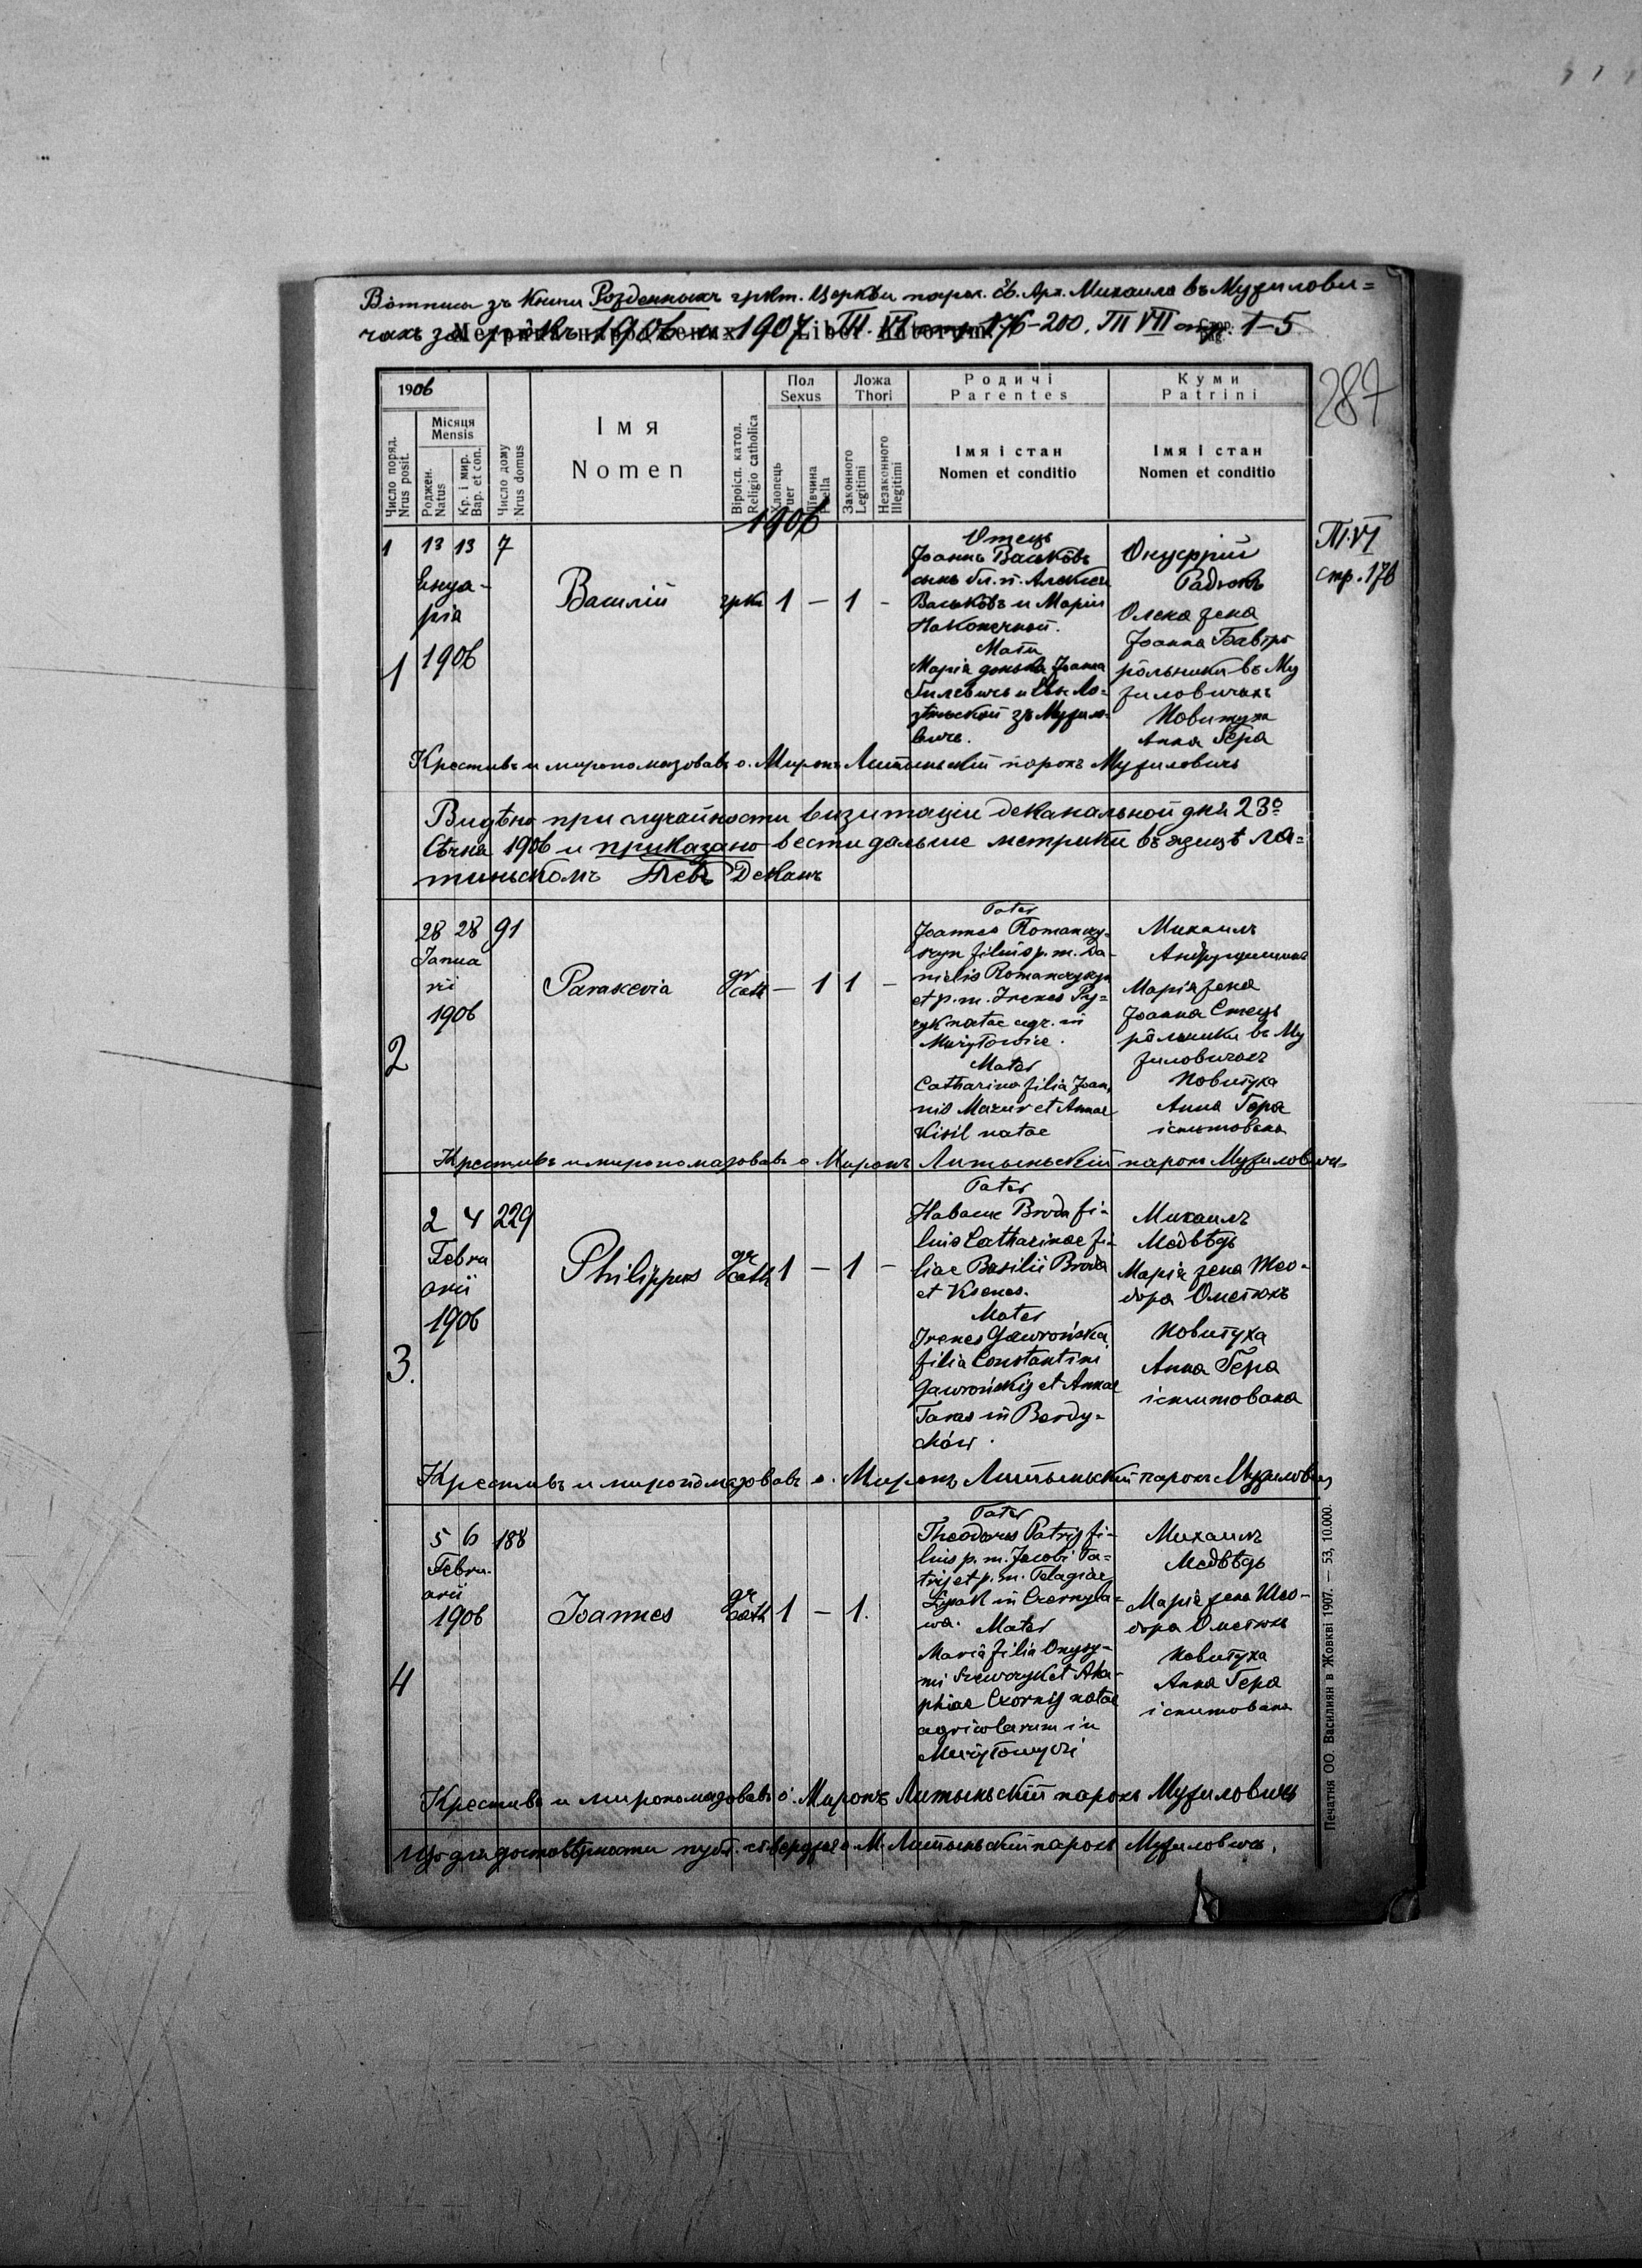 Вôтпись зъ Книги Рожденныхъ гркт. Церкви парох. св. Арх. Михаила въ Мужилови=
чахъ за 1906 и 1907 Т. VI стр. 176-200. Т. VII стр. 1-5
Liber Natorum
287
1906
Число поряд.
Nrus posit.
Місяця
Mensis
Роджен.
Natus
Кр. і мир.
Bap. et con.
Число дому
Nrus domus
Імя
Nomen
Віроісп. катол.
Religio catholica
Пол
Sexus
Хлопець
Puer
Дївчина
Puella
Ложа
Thori
Законного
Legitimi
Незаконного
Illegitimi
Родичі
Parentes
Імя і стан
Nomen et conditio
Куми
Patrini
Імя і стан
Nomen et conditio
1906
Т. VI
стр. 176
1
13 13 7
Енуа-
рія
1906
1
Василій
грк
1 — 1 -
Отець
Іоаннъ Васькôвъ
сынъ бл. п. Алексія
Васькôвъ и Маріи
Наконечной.
Мати
Марія донька Іоанна
зъ Мужило-
вичъ.
Онуфрій
Радюкъ
Олена жена
Іоанна
рôльники въ Му
жиловичахъ
Повитуха
Анна Гера
Крестивъ и миропомазовавъ о. Миронъ Литыньскій парохъ Мужиловичъ
Видѣно при случайности визитаціи деканальной дня 23º
Сѣчня 1906 и приказано вести дальше метрики въ языцѣ ла=
тиньскомъ Деканъ
2
28 28 91
Janua
rii
1906
Paraskevia
gr
cath
— 1 1 —
Pater
Joannes Romanczy-
szyn filius p. m. Da-
nielis Romanczyszyn
et p. m. Irenes Py=
natae agr. in
Mużyłowice.
Mater
Catharina filia Joan,
nis Mazur et Annae
Kisil natae
Михаилъ
Андрушишинъ
Марія жена
Іоанна Стець
рôльники въ Му
жиловичахъ
Повитуха
Анна Гера
іспытована
Крестивъ и миропомазовавъ о Миронъ Литыньскій парохъ Мужиловичъ
3.
2 4 229
Febru
arii
1906
Philippus
gr
cath
1 — 1 —
Pater
Habacuc Broda fi-
lius Catharinae fi-
liae Basilii Broda
et Ksenes.
Mater
Irenes Gawrońska
filia Constantini
Gawrońskij et Annae
in Berdy-
chów.
Михаилъ
Медвѣдь
Марія жена Тео-
дора Ометюхъ
Повитуха
Анна Гера
іспитована
Крестивъ и миропомазовавъ о. Миронъ Литыньскій парохъ Мужиловичъ
4
5 6 188
Febru-
arii
1906
Joannes
gr
cath
1 — 1.
Pater
Theodorus Patrij fi-
lius p. m. Jacobi Pa-
trij et p. m. Pelagiae
in Czernyla=
wa. Mater
Maria filia Onysy-
mi Szewczyk et Aha-
phiae Czornij natae
agricolarum in
Mużyłowyczi
Михаилъ
Медвѣдь
Марія жена Тео-
дора Ометюхъ
Повитуха
Анна Гера
іспитована
Крестивъ и миропомазовавъ о. Миронъ Литыньскій парохъ Мужиловичъ
о М. Литыньскій парохъ Мужиловичъ.
Печатня ОО. Василиян в Жовкві 1907. — 53, 10.000.